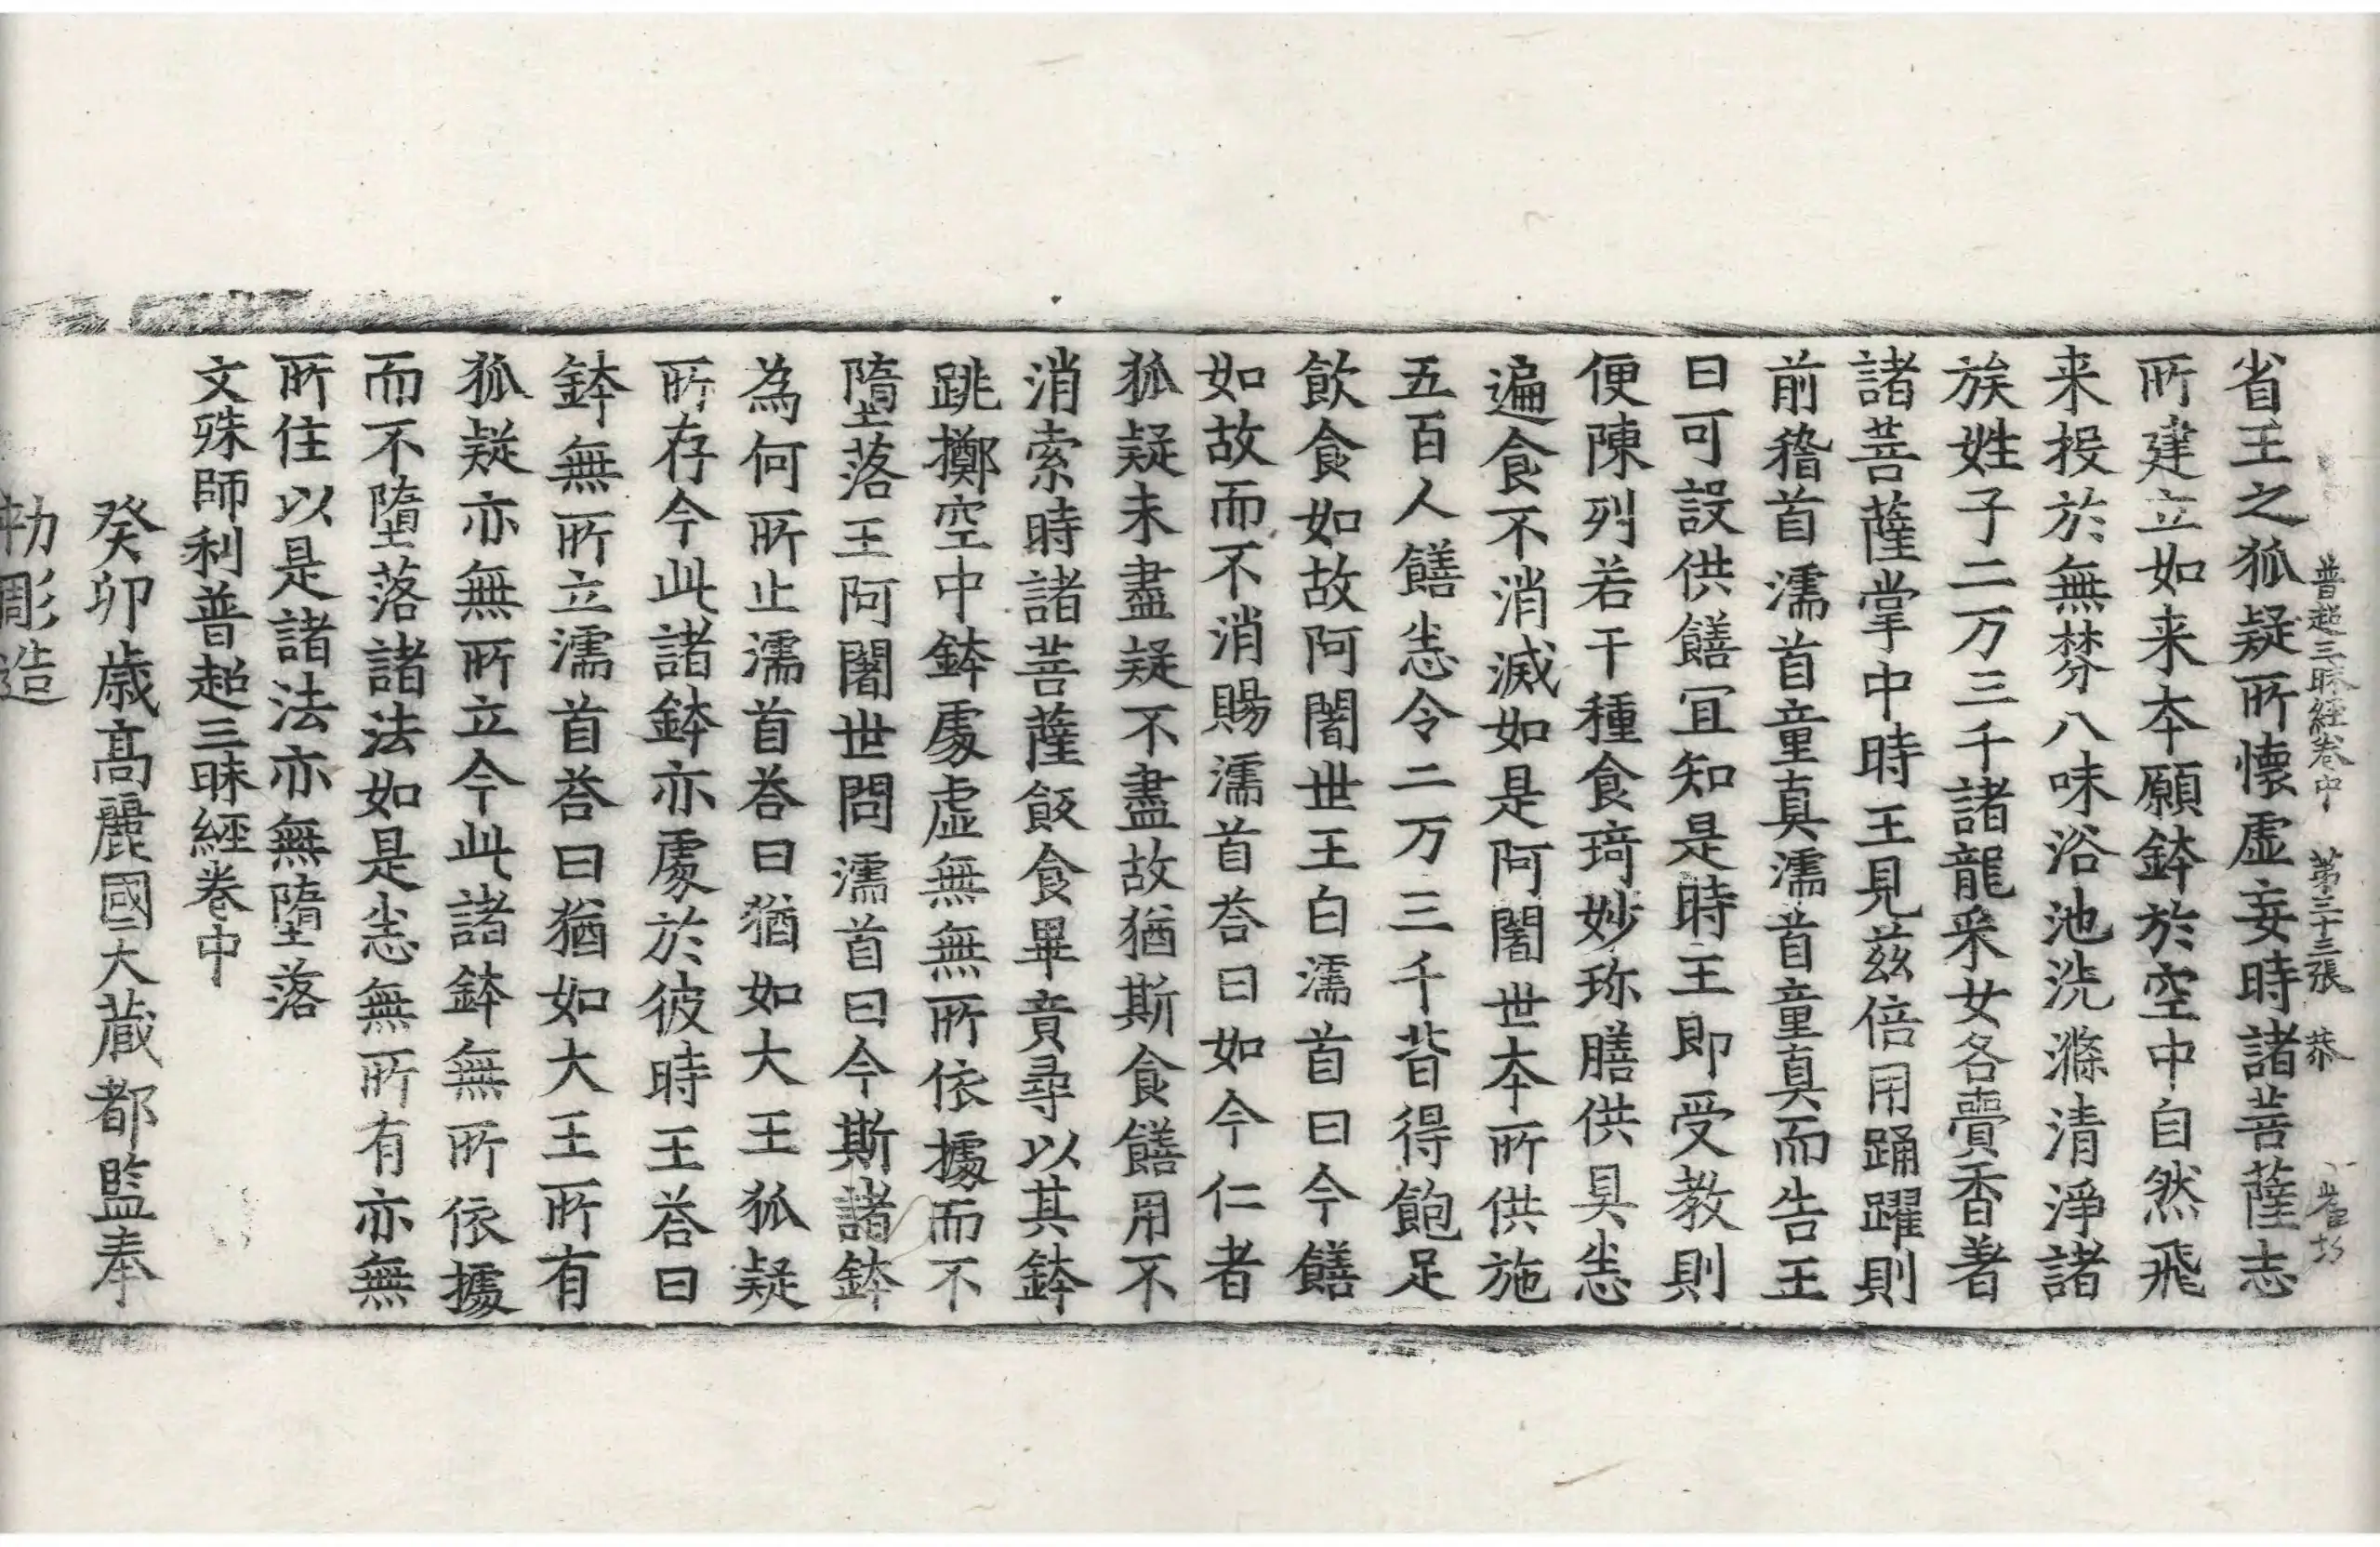 普超三昧經卷中 第三十三張 恭
省王之狐疑所懷虛妄時諸菩薩志
所建立如来本願鉢於空中自然飛
来投於無棼八味浴池洗滌清淨諸
族姓子二万三千諸龍采女各賷香著
諸菩薩掌中時王見茲倍用踊躍則
前稽首濡首童真濡首童真而告王
曰可設供饍冝知是時王即受教則
便陳列若干種食琦妙珎膳供具㤪
遍食不消滅如是阿闍世本所供施
五百人饍㤪令二万三千皆得飽足
飲食如故阿闍世王白濡首曰今饍
如故而不消賜濡首荅曰如今仁者
狐疑未盡疑不盡故猶斯食饍用不
消索時諸菩薩飯食畢竟尋以其鉢
跳擲空中鉢處虛無無所依據而不
墮落王阿闍世問濡首曰今斯諸鉢
為何所止濡首荅曰猶如大王狐疑
所存今此諸鉢亦處於彼時王荅曰
鉢無所立濡首荅曰猶如大王所有
狐疑亦無所立今此諸鉢無所依據
而不墮落諸法如是㤪無所有亦無
所住以是諸法亦無墮落
文殊師利普超三昧經卷中
癸卯歳高麗國大蔵都監奉
勑彫造